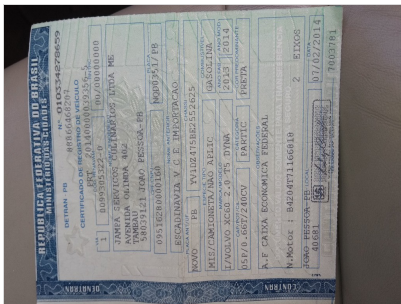 REPÚBLICA FEDERATIVA DO BRASIL
MINISTÉRIO DAS CIDADES
DETRAN - PB Nº 010354278659
CERTIFICADO DE REGISTRO DE VEÍCULO
1 0099305322-0 00/00000000
JAMBA SERVICOS CULINARIOS LTDA ME
AVENIDA OLINDA 402
TAMBAU
58039121 JOAO PESSOA PB
09516280000160
ESCADINAVIA V C E IMPORTACAO
NOVO PB YV1DZ4T5BE2552625
MIS/CAMIONETA/NAO APLIC GASOLINA
I/VOLVO XC60 2.0 T5 DYNA 2013 2014
05P/0.66T/240CV PARTIC PRETA
A.F CAIXA ECONOMICA FEDERAL
N.Motor : B4204T71166018 2 EIXOS
JOAO PESSOA PB 07/02/2014
40681 7003781
CONTRAN
DENATRAN